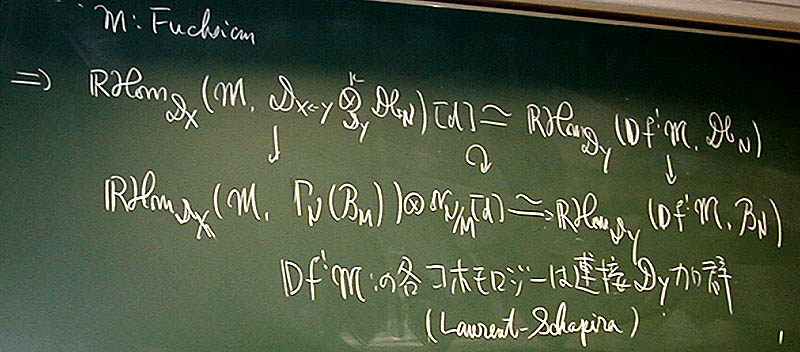 M: Fuchsian
⇒ RHom_{D_X}(M, D_{X←Y} ⊗^{L}_{D_Y} Db_N)[d] ≃ RHom_{D_Y}(Df*M, Db_N)
↓ ↷ ↓
RHom_{D_X}(M, Γ_N(B_M)) ⊗ or_{N/M}[d] ≃ RHom_{D_Y}(Df*M, B_N)
Df*M:の各コホモロジーは連接D_Y加群
(Laurent-Schapira)